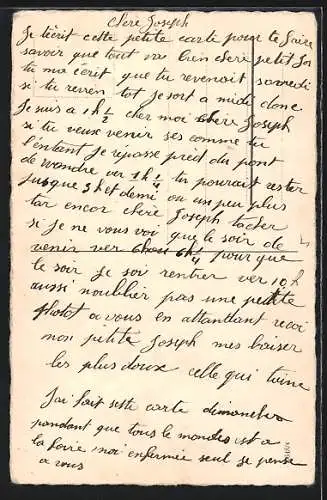 chere Joseph
Je tecrit cette petite carte pour te faire
savoir que tout vas bien chere petit Jo
tu ma écrit que tu revenoit samedi
si tu reven tot je sort a midi donc
Je suis a 1h½ cher moi chere Joseph
si tu veux venir ses comme tu
l'entent Je repasse pred du pont
de wandre ver 1h¼ tu pourait rester
jusque 3h et demi ou un peu plus
tar encor chere Joseph tacher
si je ne vous voi que le soir de
venir ver 6h¼ pour que
le soir je soi rentrer ver 10h
aussi noublier pas une petite
photot a vous en attandant recoi
mon petite Joseph mes baiser
les plus doux celle qui taime
J'ai fait sette carte dimancher
pandant que tous le mondes est a
la foire moi enfermée seul je pense
a vous